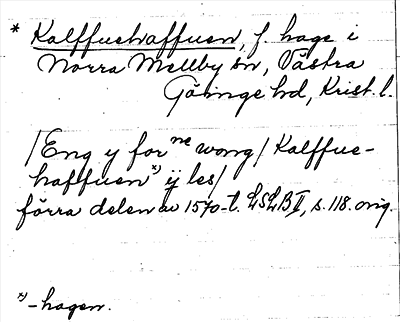 * Kalffuehaffuen, f. hage i
Norra Mellby sn, Västra
Göinge hd, Krist. l.
/Eng y for ne wong/ Kalffue-
haffuen x) ÿ les/
förra delen av 1570-t. LSLB II, s. 118. orig.
x) -hagen.